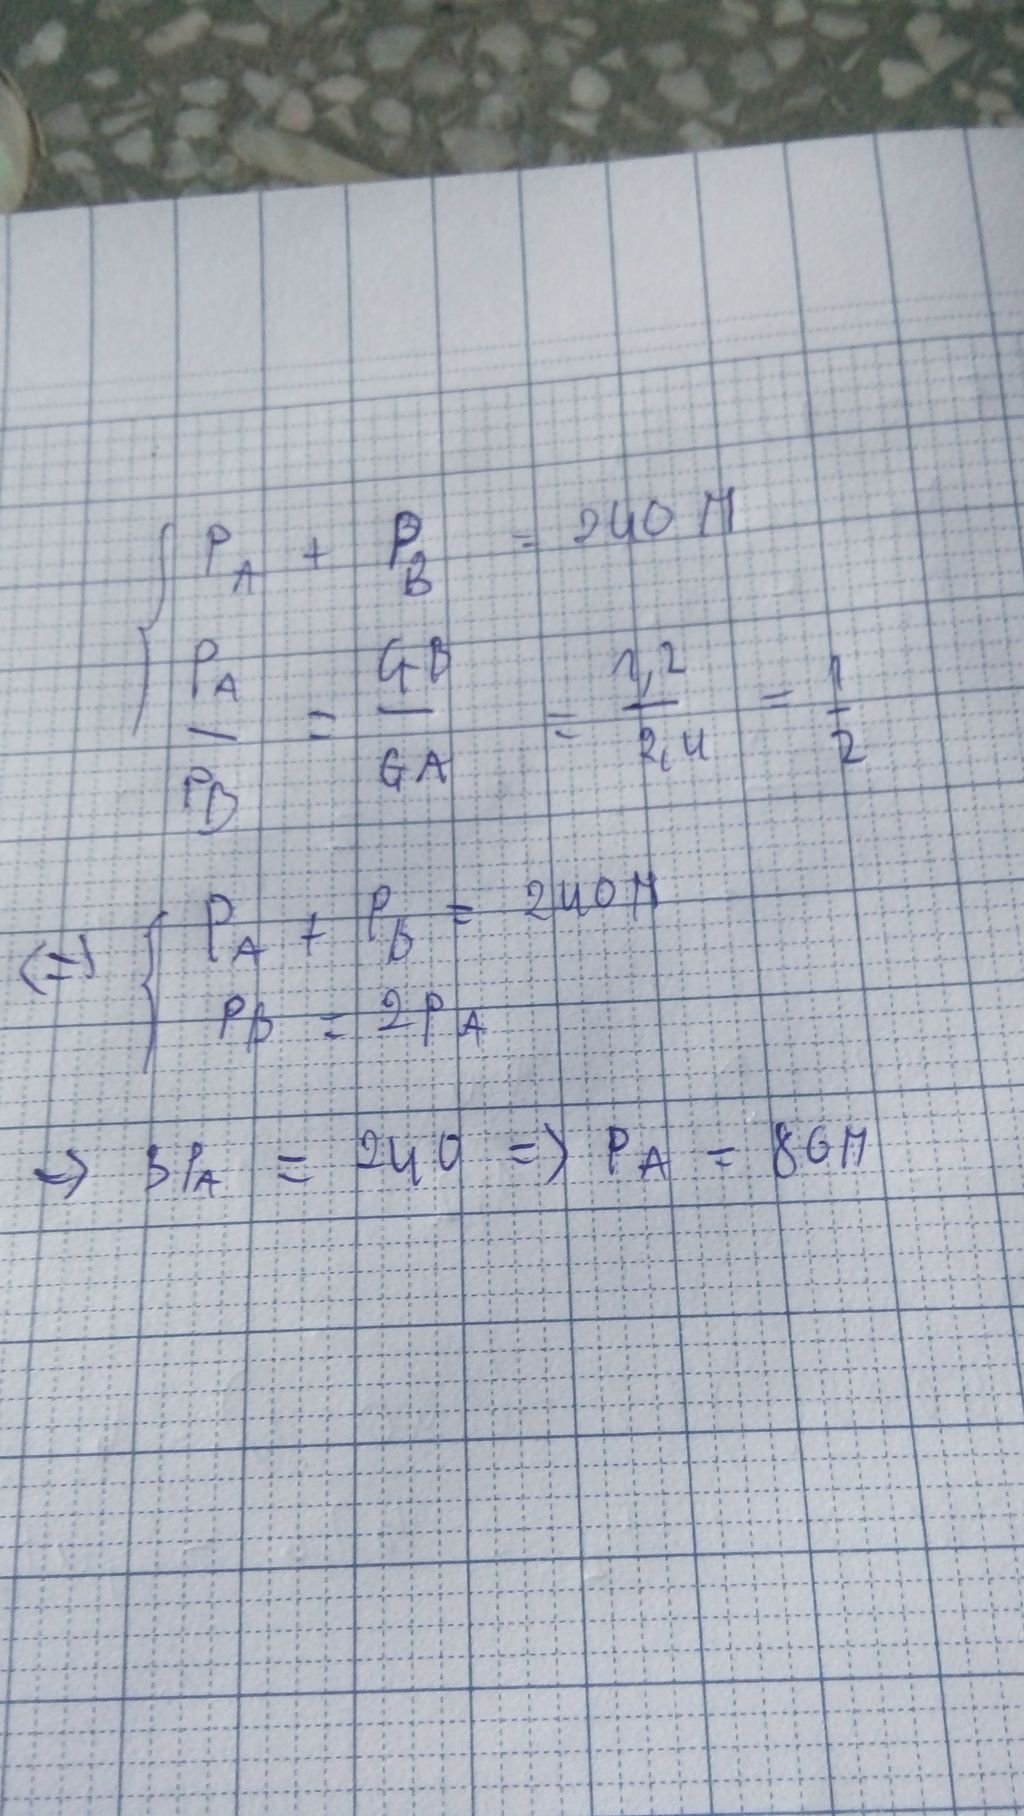 P_A + P_B = 240 N
P_A / P_B = GB / GA = 1,2 / 2,4 = 1 / 2
<=> P_A + P_B = 240N
P_B = 2P_A
→ 3P_A = 240 => P_A = 80N